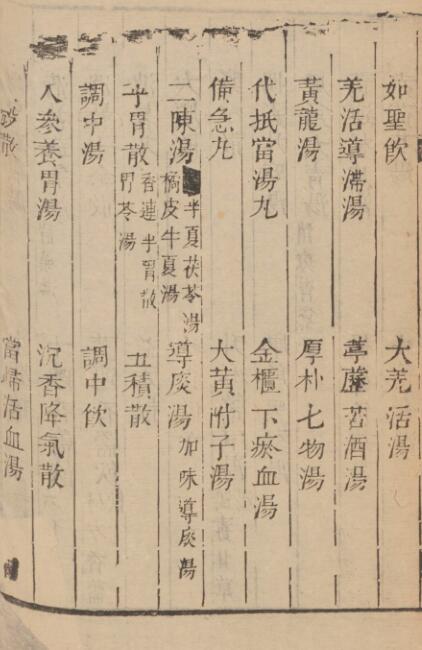 如聖飲 大羌活湯
羌活導滯湯 葶藶苦酒湯
黃龍湯 厚朴七物湯
代抵當湯丸 金櫃下瘀血湯
備急丸 大黃附子湯
二陳湯 半夏茯苓湯 橘皮半夏湯 導痰湯 加味導痰湯
平胃散 香連平胃散 胃苓湯 五積散
調中湯 調中飲
人參養胃湯 沉香降氣散
散 當歸活血湯